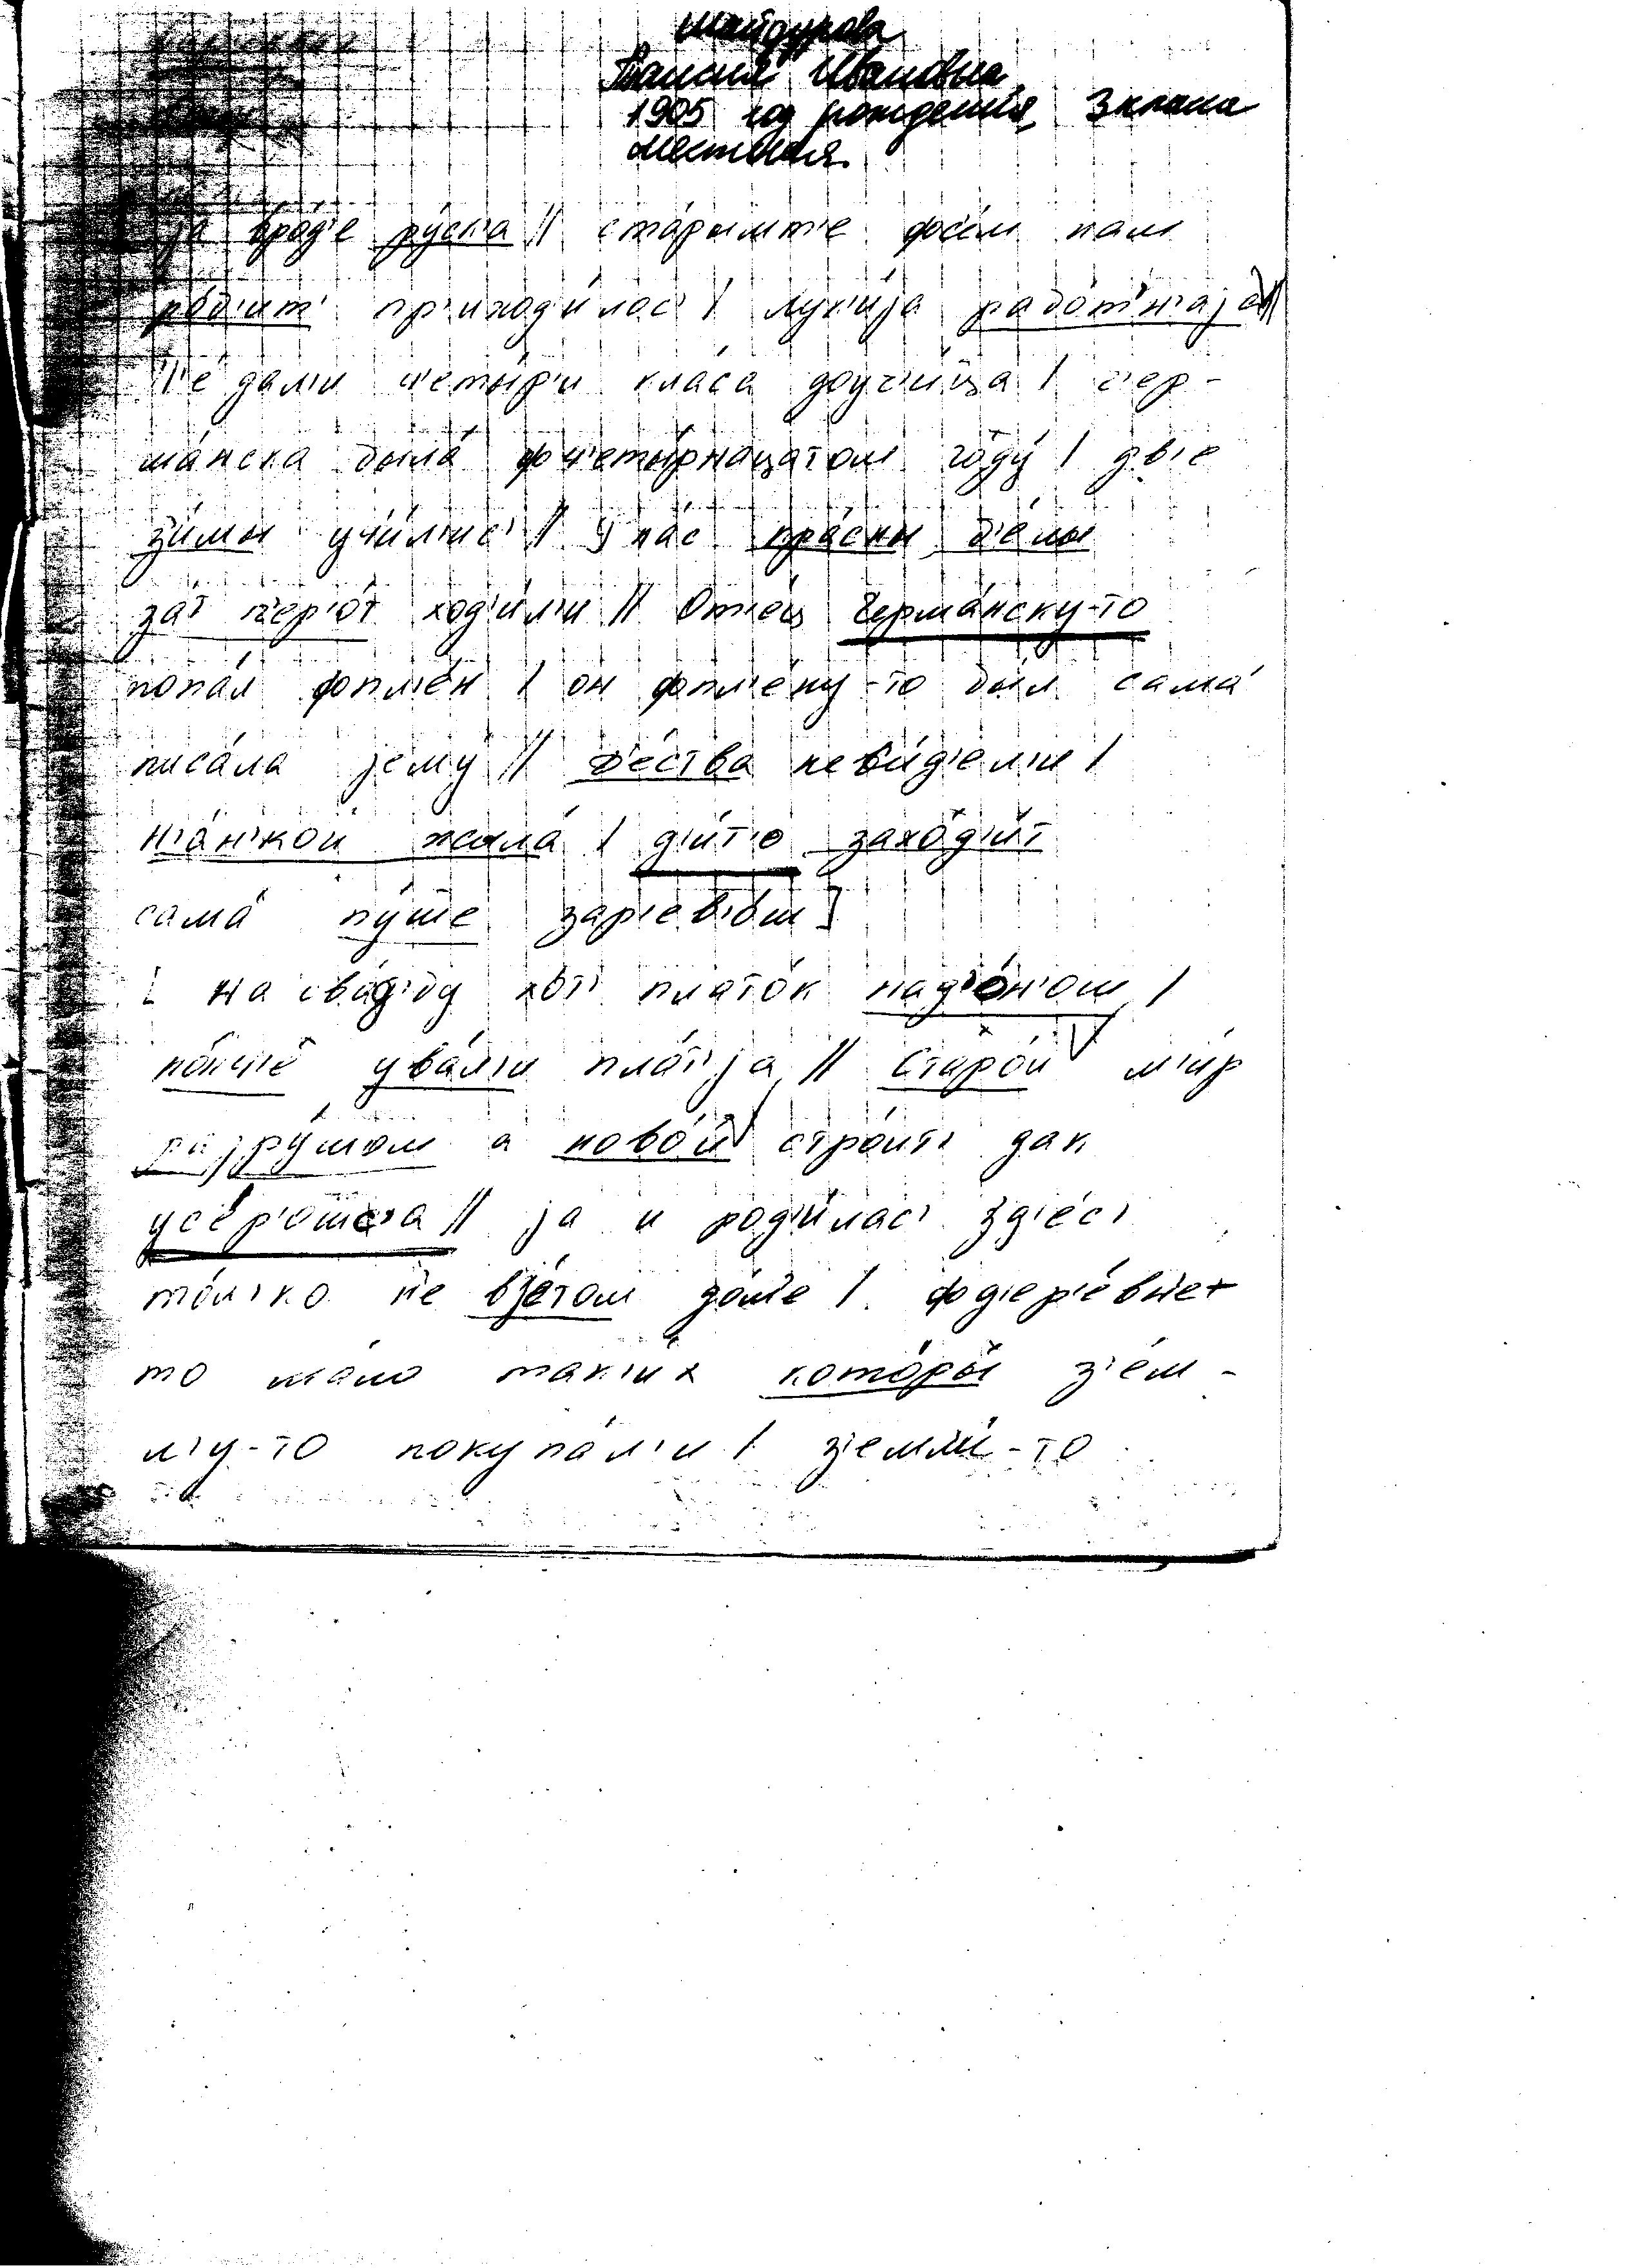 Шайдурова
Таисия Ивановна
1905 год рождения, 3 класса
местная.
ја вро́д'е ру́ск'а // ста́рышм'е фс'е́м нам
ро́б'ит' пр'иход'и́лос' / лу́к'ија рабо́т'н'аја //
н'е́ дал'и ч'еты́р'и кла́са доуч'и́ца / г'ер-
ма́нска была́ фч'еты́рнацатом году́ / дв'е
зимы́ уч'и́л'ис' // у на́с пра́сны д'е́лы
зат п'ер'о́т ход'и́л'и // От'е́ц Герма́нску-то
попа́л фпл'е́н / он фпл'ену́-то бы́л сама́
писа́ла јему́ // д'е́ства неви́д'ел'и /
н'а́н'кой жыла́ / д'ит'о́ захо́д'ит
сама́ пу́ше зар'ев'о́ш]
[ на сва́д'бу хот' плато́к над'е́н'ош /
но́нч'е ува́л'и пла́т'ја // Старо́й м'ир
разру́шом а ново́й стро́ит' дак
усе́р'отс'а // ја и род'и́лас' зд'ес'
то́л'ко н'е взе́том до́м'е / фд'ер'е́вне+
то ма́ло так'и́х кото́ры з'е́м-
л'у-то покупа́л'и / з'емли́-то